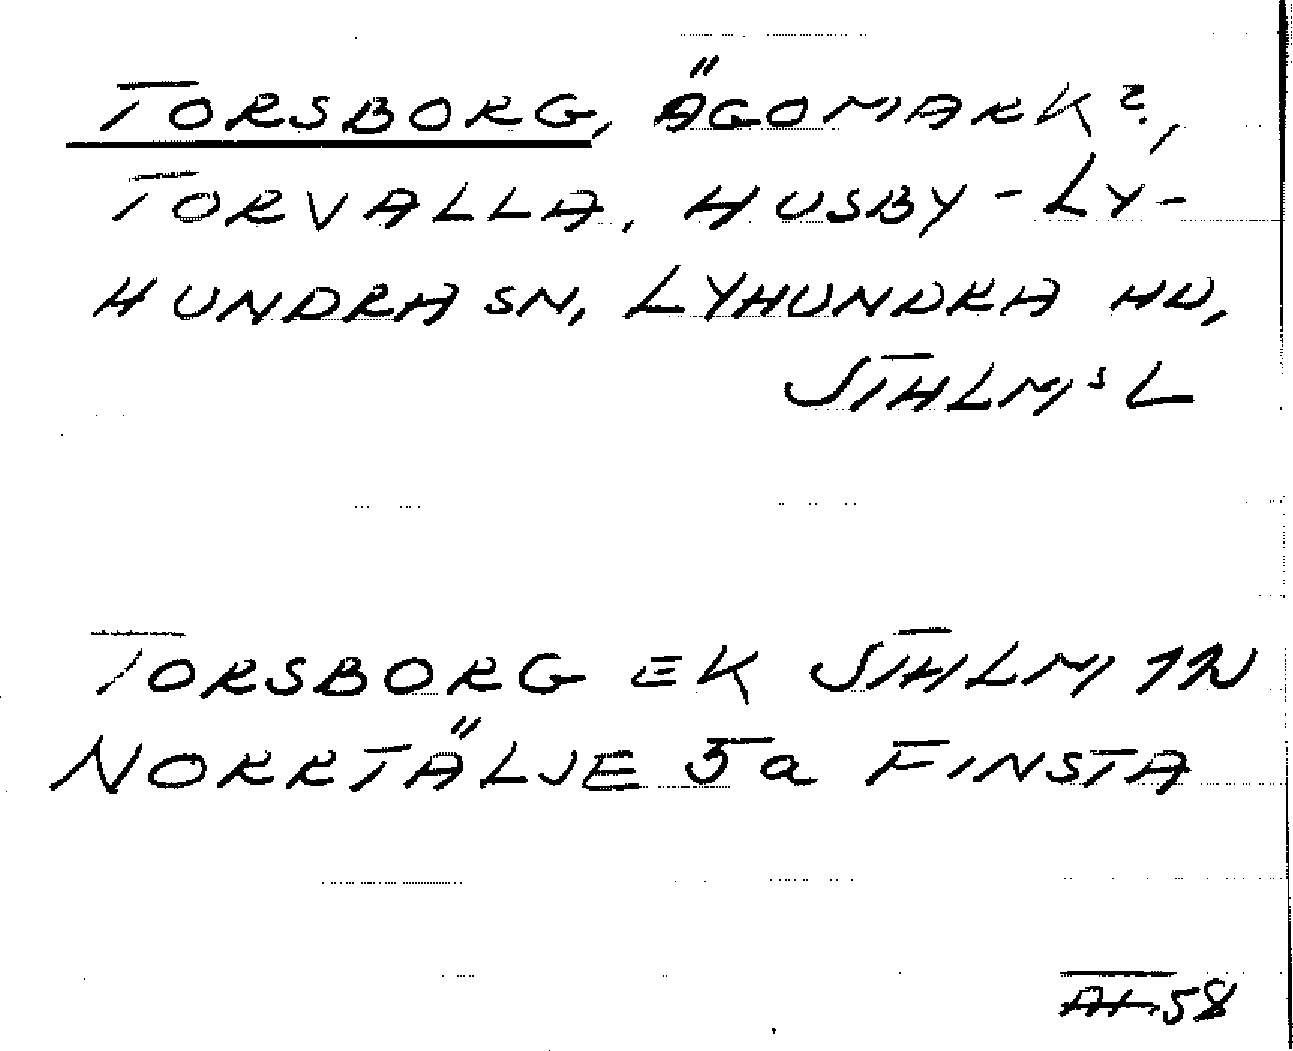 TORSBORG, ÄGOMARK?,
TORVALLA, HUSBY-LY-
HUNDRA SN, LYHUNDRA HD,
STHLMS L
TORSBORG EK STHLM
NORRTÄLJE 5a FINSTA
58